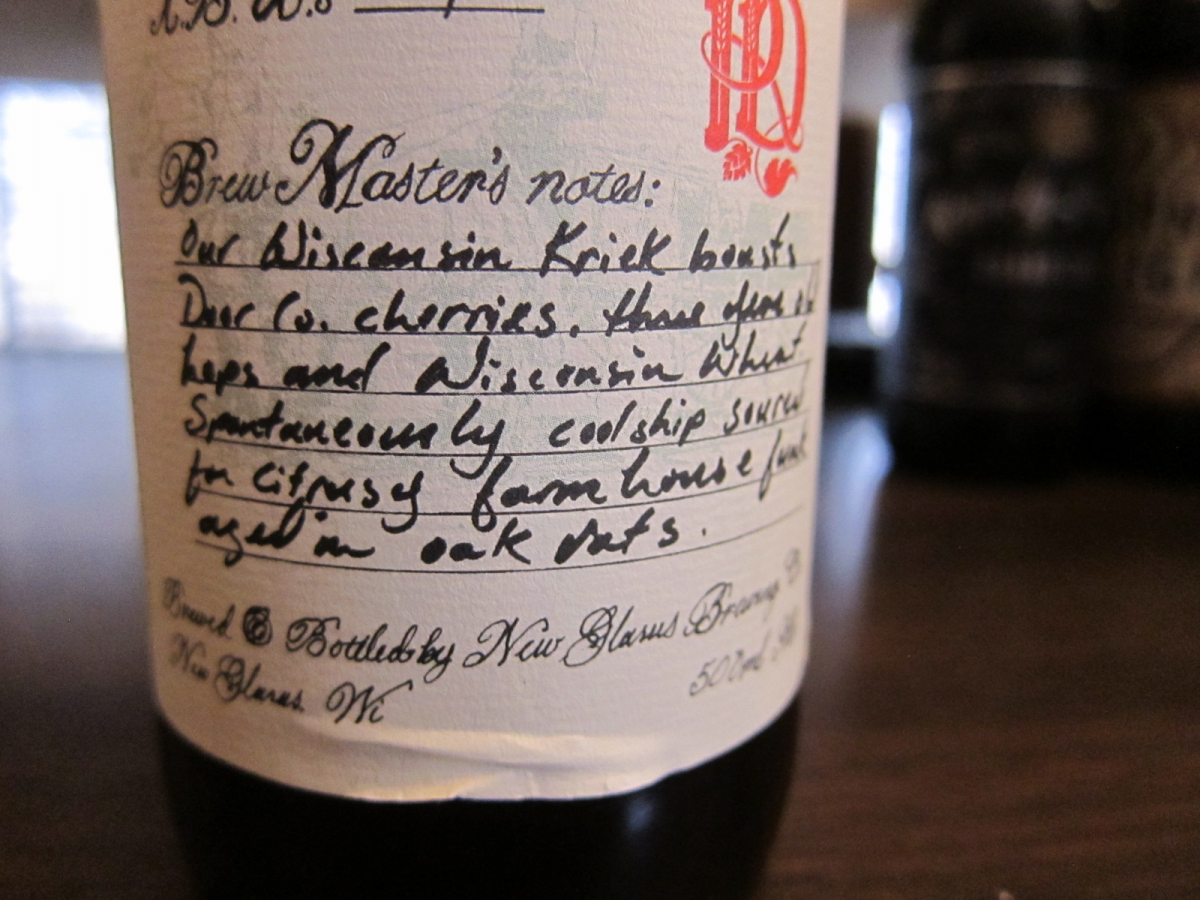 A.B.W.:
RD
Brew Master's notes:
Our Wisconsin Kriek boasts
Door Co. cherries, three years old
hops and Wisconsin Wheat
Spontaneously coolship soured
for citrusy farmhouse funk
aged in oak vats.
Brewed & Bottled by New Glarus Brewing
New Glarus, Wi
500ml